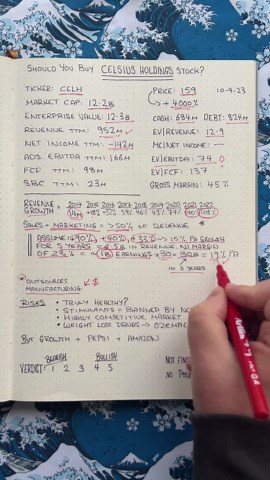 SHOULD YOU BUY CELSIUS HOLDINGS STOCK?
TICKER: CELH
PRICE: 159
10-9-23
MARKET CAP: 12.2B
→ +4000%
ENTERPRISE VALUE: 12.3B
CASH: 684M DEBT: 824M
REVENUE TTM: 952M
EV/REVENUE: 12.9
NET INCOME TTM: -142M
MC/NET INCOME: —
ADJ. EBITDA TTM: 166M
EV/EBITDA: 74
FCF TTM: 98M
EV/FCF: 137
SBC TTM: 23M
GROSS MARGIN: 45%
REVENUE 2014 2015 2016 2017 2018 2019 2020 2021 2022
GROWTH =
SALES + MARKETING = >50% OF REVENUE
ASSUME +90%, +40%, + → 15% PA GROWTH
FOR 5 YEARS = IN REVENUE. NI MARGIN
OF EARNINGS × 30 =
IN 5 YEARS
OUTSOURCES ↓$
MANUFACTURING
RISKS • TRULY HEALTHY?
• STIMULANTS = BANNED BY
• HIGHLY COMPETITIVE MARKET
• WEIGHT LOSS DRUGS →
BUT GROWTH + PEPSI + AMAZON
BEARISH BULLISH
VERDICT: 1 2 3 4 5
NOT
NO